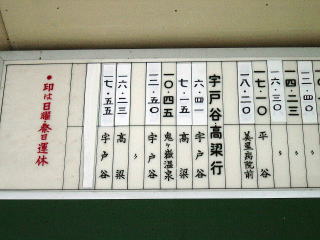 一四・二三 〃
一六・三〇 〃
一七・一〇 平谷
一八・二〇 美星病院前
宇戸谷・高梁行
六・四一 宇戸谷
七・一五 高梁
一〇・四五 鬼ヶ嶽温泉
一二・五〇 宇戸谷
〃
一六・二三 高梁
一七・五五 宇戸谷
●印は日曜・祭日運休